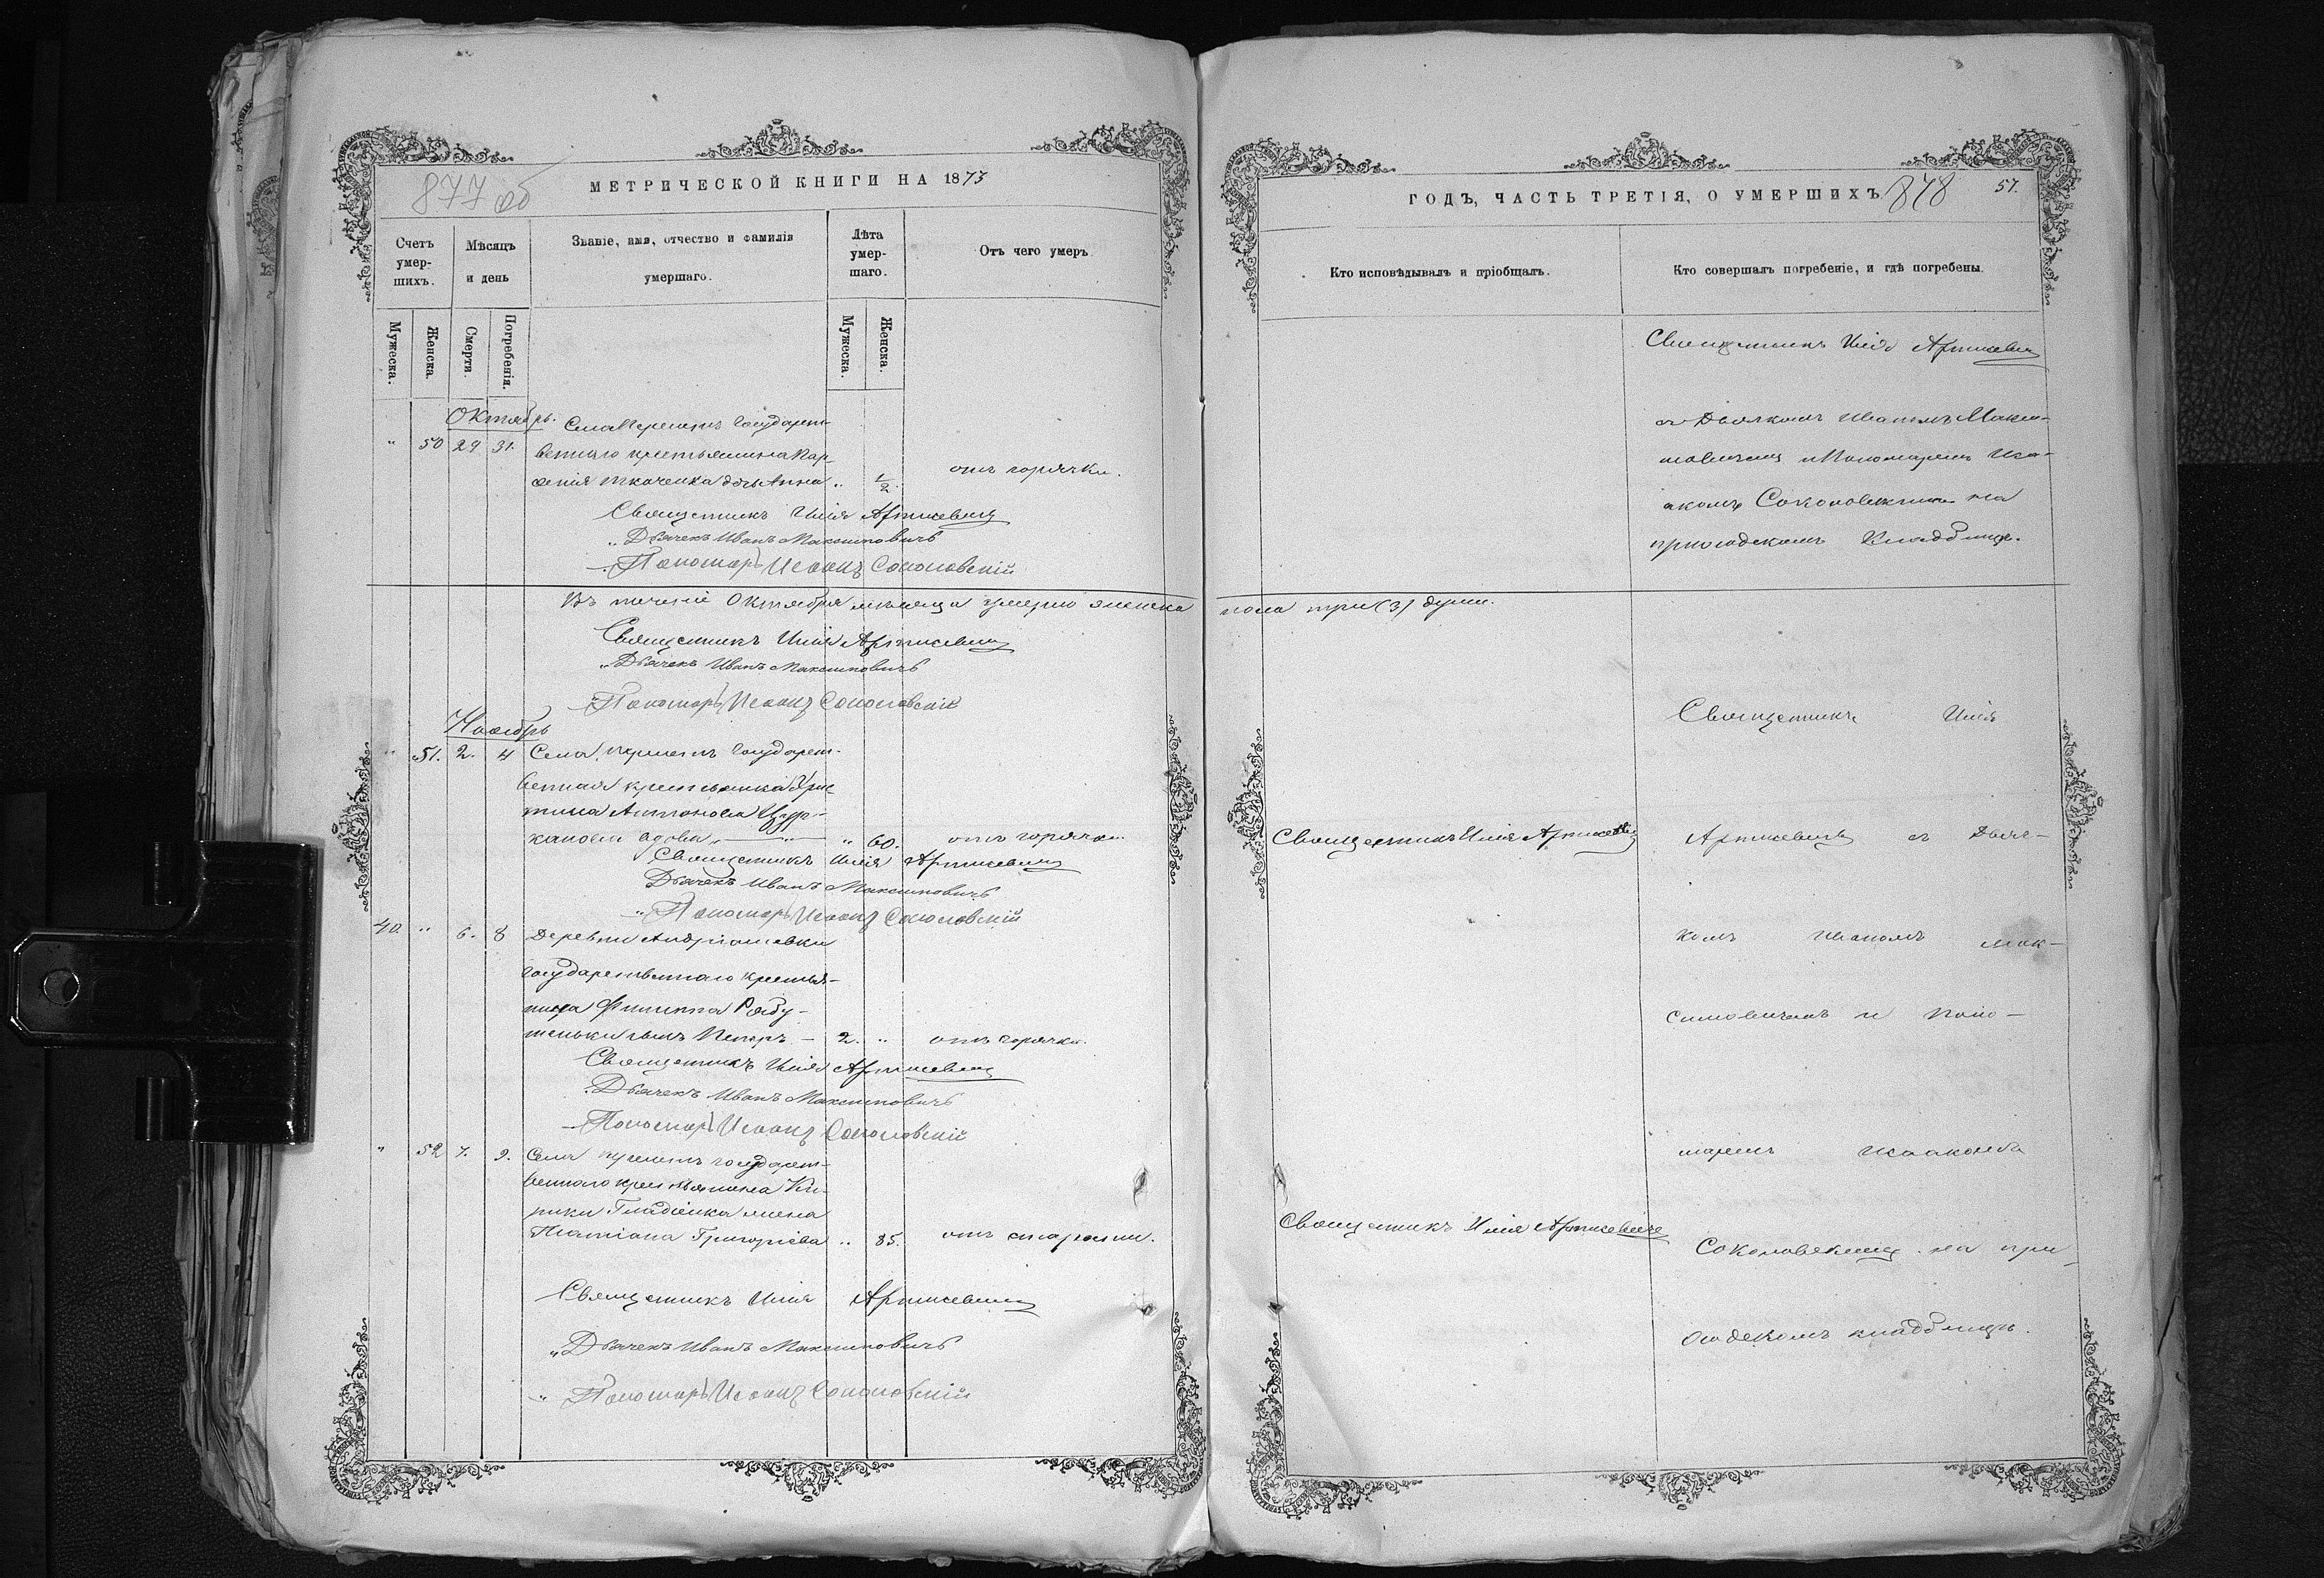 877 об
МЕТРИЧЕСКОЙ КНИГИ НА 1873
Счетъ умер-шихъ.
Мѣсяцъ и день
Званіе, имя, отчество и фамилія умершаго.
Лѣта умер-шаго.
Отъ чего умеръ
Мужеска.
Женска.
Смерти.
Погребенія.
Мужеска.
Женска.
Октябрь.
Села государст-
" 50 29 31. веннаго крестьянина Пар-
фенія Ткаченка дочь Анна " 1/2. отъ горячки.
Священникъ Илія Артисевичъ
" Дьячекъ Иванъ Максимовичъ
" Пономарь Исаакъ Соколовскій
Въ теченіе Октября мѣсяца умерло женска
Священникъ Илія Артисевичъ
" Дьячекъ Иванъ Максимовичъ
" Пономарь Исаакъ Соколовскій
Ноябрь
" 51. 2. 4 Села государст-
венная крестьянка Хрис-
тина Антонова
вдова " — " — " 60. отъ горячки
Священникъ Илія Артисевичъ
Дьячекъ Иванъ Максимовичъ
" Пономарь Исаакъ Соколовскій
40. " 6. 8 Деревни Андріяшевки
государственнаго крестья-
нина Филиппа Рябу-
теньки сынъ Петръ — 2. " отъ горячки.
Священникъ Илія Артисевичъ
Дьячекъ Иванъ Максимовичъ
Пономарь Исаакъ Соколовскій
" 52 7. 9. Села государст-
веннаго крестьянина Ки-
рика Гладченка жена
Татіана Григоріева " 85. отъ старости.
Священникъ Илія Артисевичъ
" Дьячекъ Иванъ Максимовичъ
" Пономарь Исаакъ Соколовскій
ГОДЪ, ЧАСТЬ ТРЕТІЯ, О УМЕРШИХЪ
878
57.
Кто исповѣдывалъ и пріобщалъ.
Кто совершалъ погребеніе, и гдѣ погребены.
Священникъ Илія Артисевичъ
съ Дьячкомъ Иваномъ Макси-
мовичемъ и Пономаремъ Иса-
акомъ Соколовскимъ на
приходскомъ кладбищѣ.
пола три (3) души.
Священникъ Илія
Священникъ Илія Артисевичъ
Артисевичъ съ Дьяч-
комъ Иваномъ Мак-
симовичемъ и Поно-
маремъ Исаакомъ
Священникъ Илія Артисевичъ
Соколовскимъ на при-
ходскомъ кладбищѣ.